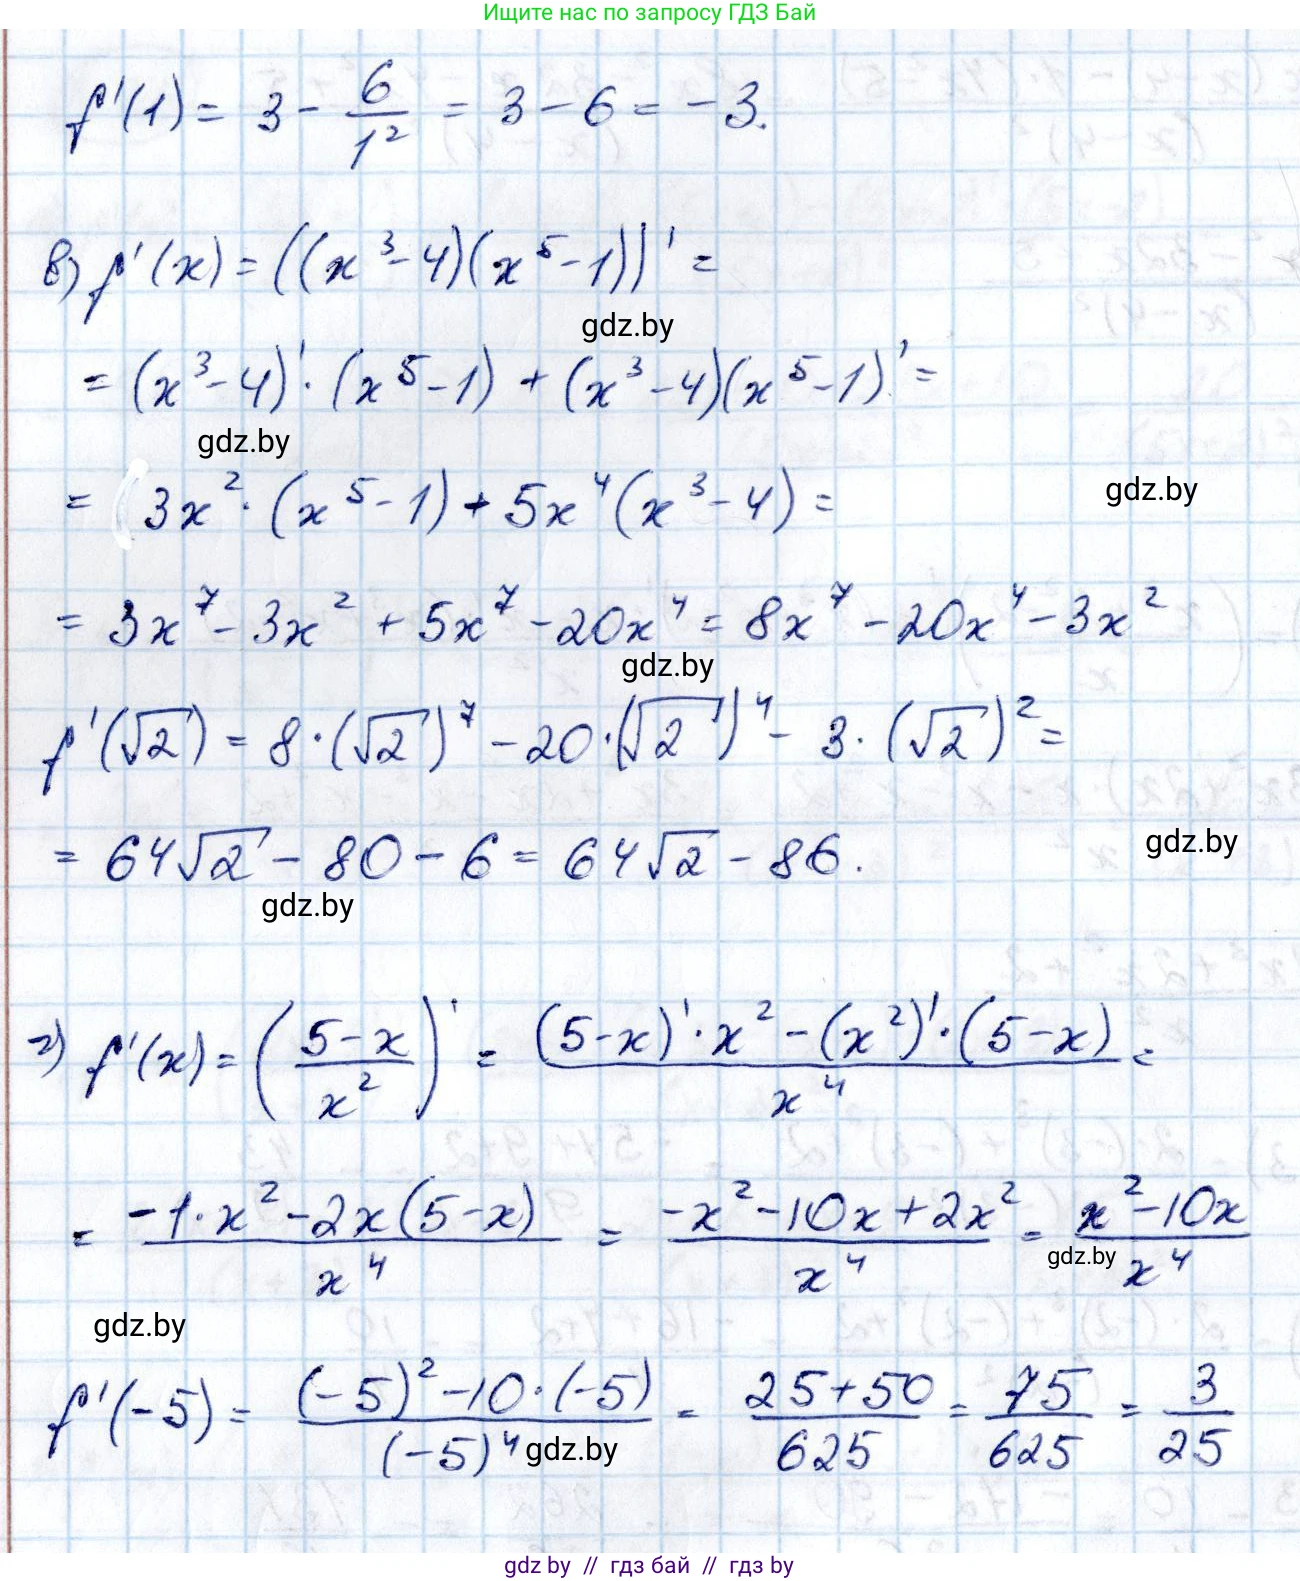 Ищите нас по запросу ГДЗ Бай
f'(1) = 3 - 6/1² = 3 - 6 = -3.
в) f'(x) = ((x³-4)(x⁵-1))' =
gdz.by
= (x³-4)'·(x⁵-1) + (x³-4)(x⁵-1)' =
gdz.by
= 3x²·(x⁵-1) + 5x⁴(x³-4) =
gdz.by
= 3x⁷ - 3x² + 5x⁷ - 20x⁴ = 8x⁷ - 20x⁴ - 3x²
gdz.by
f'(√2) = 8·(√2)⁷ - 20·(√2)⁴ - 3·(√2)² =
= 64√2 - 80 - 6 = 64√2 - 86.
gdz.by
gdz.by
г) f'(x) = ((5-x)/x²)' = ((5-x)'·x² - (x²)'·(5-x))/x⁴ =
= (-1·x² - 2x(5-x))/x⁴ = (-x² - 10x + 2x²)/x⁴ = (x² - 10x)/x⁴
gdz.by
gdz.by
f'(-5) = ((-5)² - 10·(-5))/(-5)⁴ = (25+50)/625 = 75/625 = 3/25
gdz.by
gdz by // гдз бай // гдз by